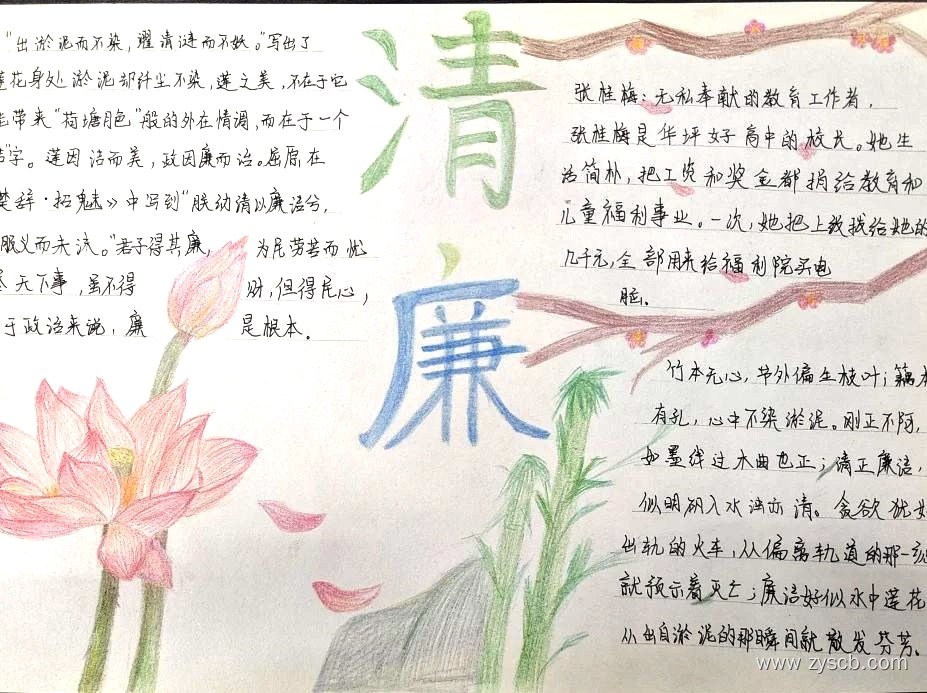 "出淤泥而不染，濯清涟而不妖。"写出了
莲花身处淤泥却纤尘不染，莲之美，不在于它
能带来"荷塘月色"般的外在情调，而在于一个
"洁"字。莲因洁而美，政因廉而治。屈原在
楚辞·招魂》中写到"朕幼清以廉洁兮，
身服义而未沫。"若于得其廉，为民劳苦而忧
尽天下事，虽不得财，但得民心，
于政治来说，廉是根本。
清
廉
张桂梅：无私奉献的教育工作者，
张桂梅是华坪女子高中的校长。她生
活简朴，把工资和奖金都捐给教育和
儿童福利事业。一次，她把上级拨给她的
几千元，全部用来给福利院买电
脑。
竹本无心，节外偏生枝叶；藕本
有孔，心中不染淤泥。刚正不阿，
如墨线过木曲也正；清正廉洁，
似明矾入水浊亦清。贪欲犹如
出轨的火车，从偏离轨道的那一刻
就预示着灭亡；廉洁好似水中莲花
从出自淤泥的那瞬间就散发芬芳。
www.zyscb.com